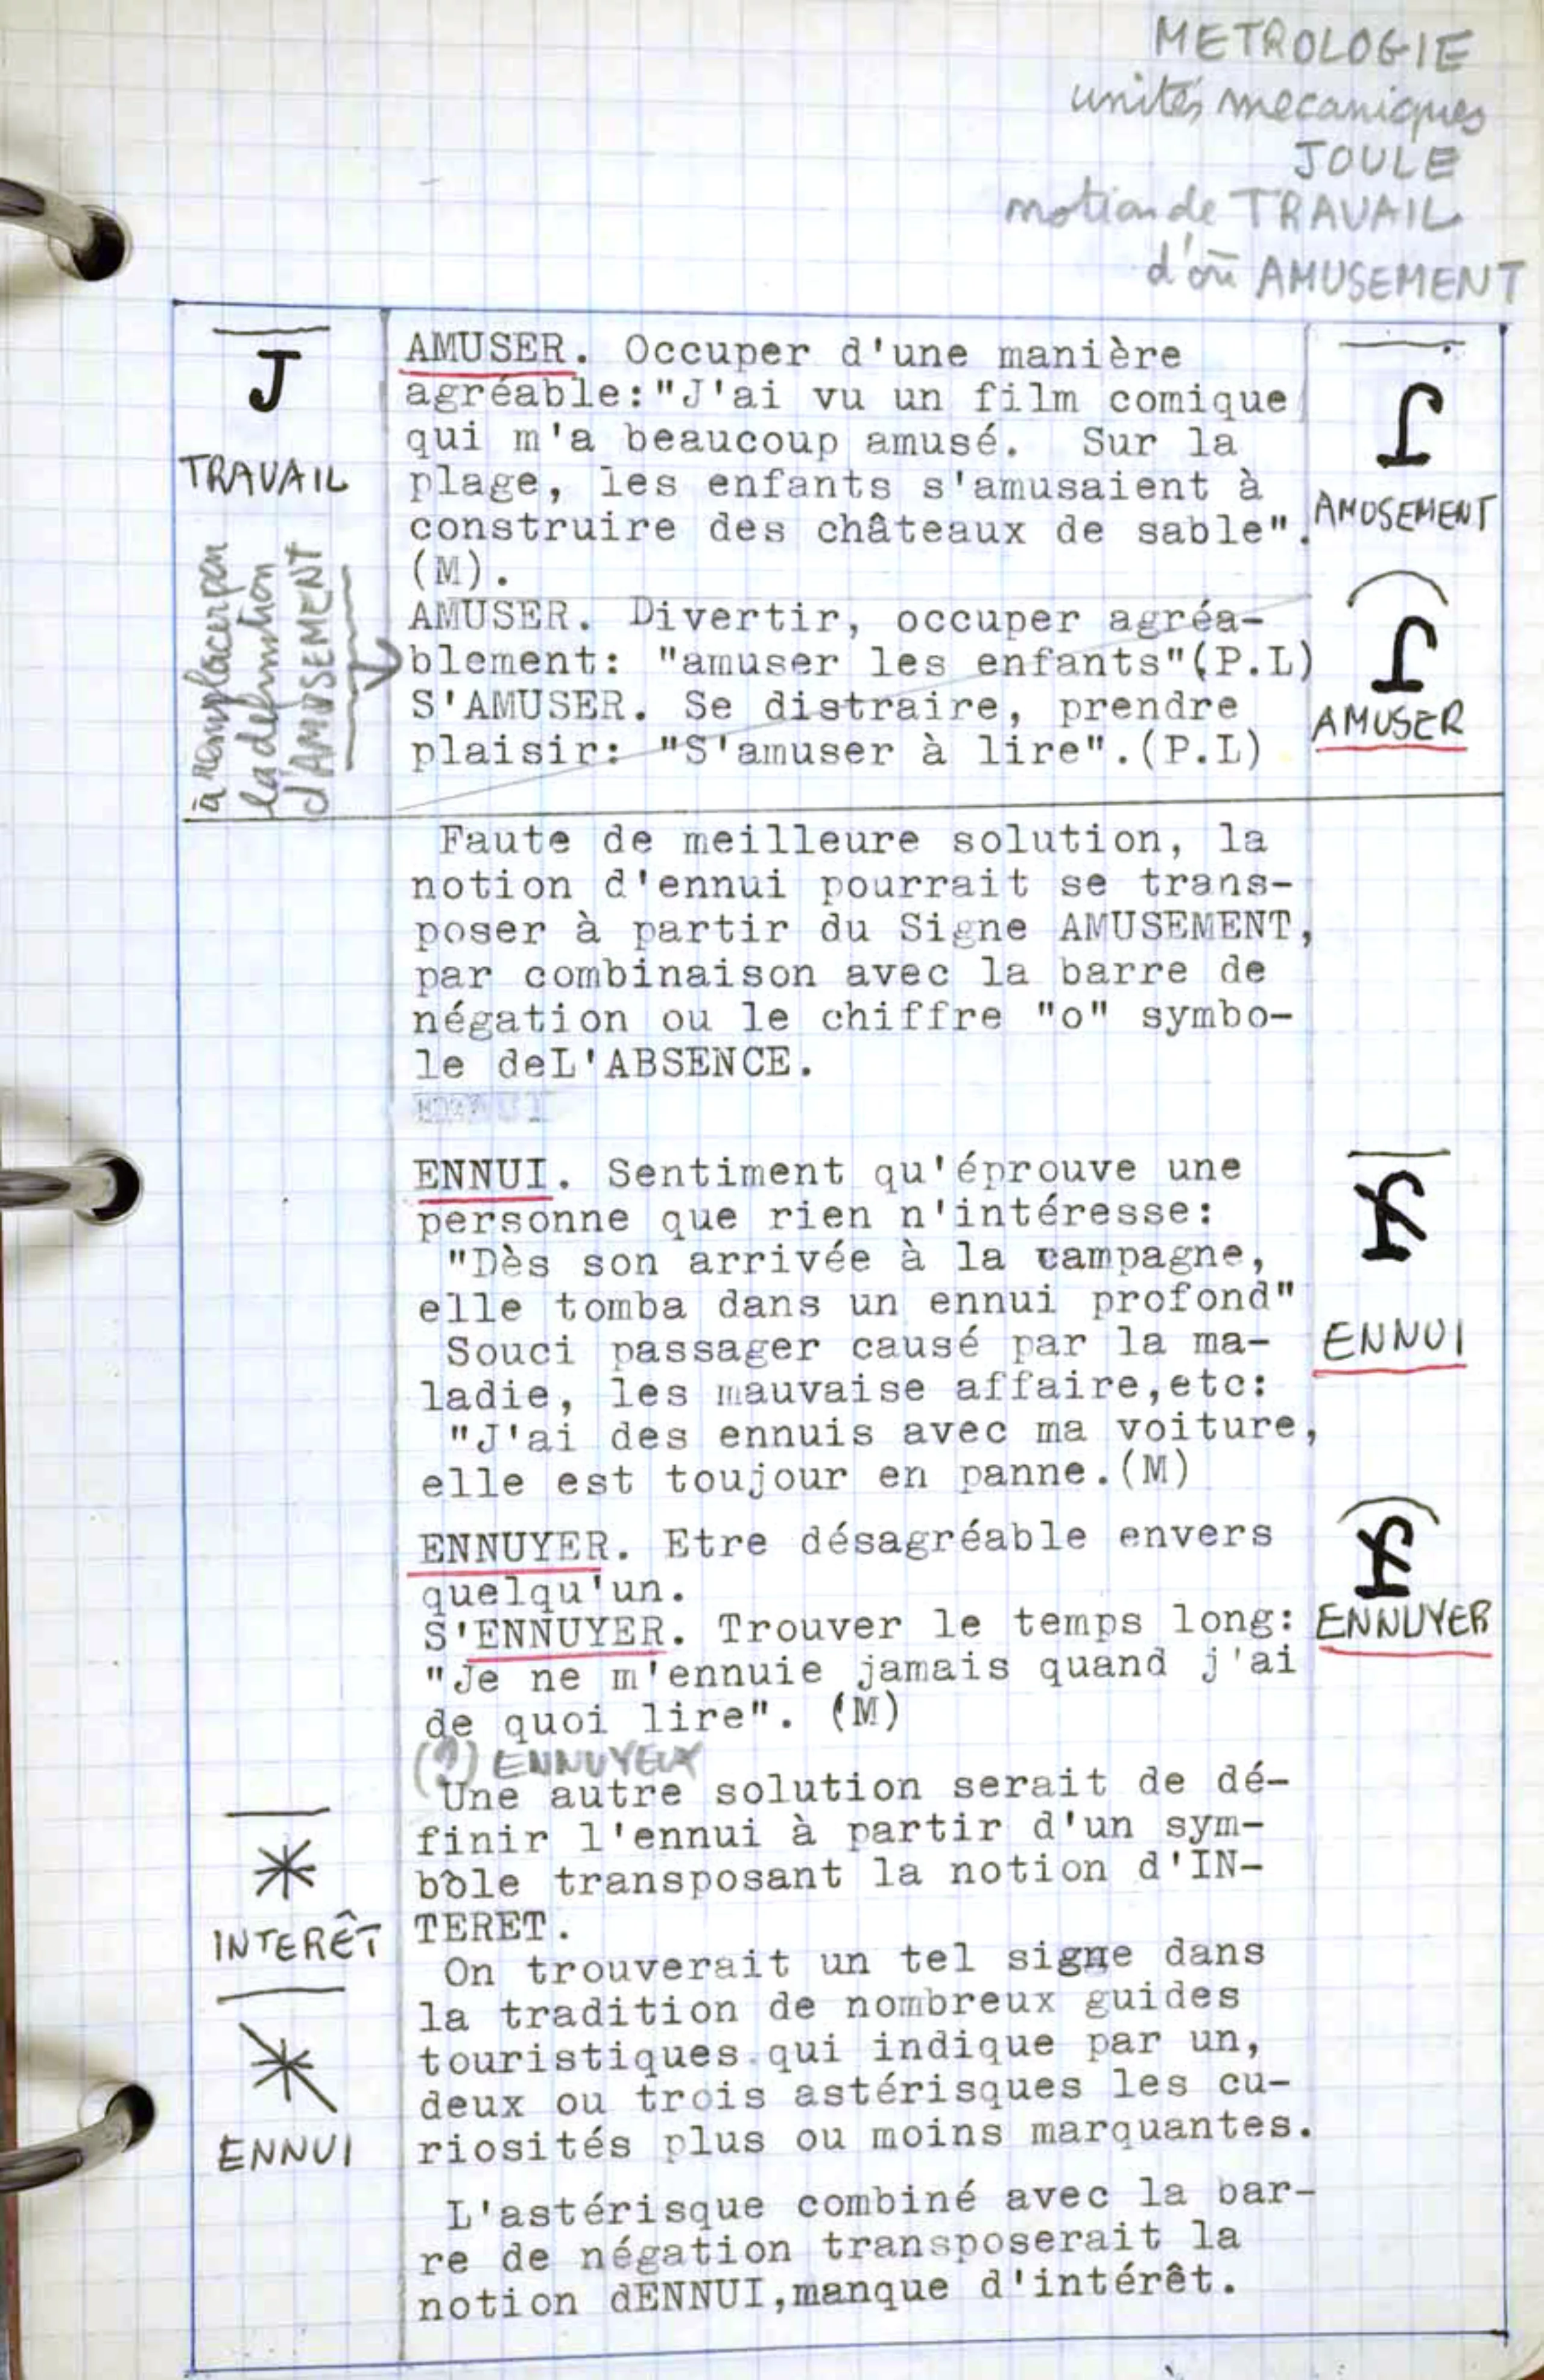 METROLOGIE
unités mecaniques
JOULE
notion de TRAVAIL
d'où AMUSEMENT
J
TRAVAIL
à remplacer par
la definition
d'AMUSEMENT
AMUSER. Occuper d'une manière
agréable:"J'ai vu un film comique
qui m'a beaucoup amusé. Sur la
plage, les enfants s'amusaient à
construire des châteaux de sable".
(M).
AMUSER. Divertir, occuper agréa-
blement: "amuser les enfants"(P.L)
S'AMUSER. Se distraire, prendre
plaisir: "S'amuser à lire".(P.L)
AMUSEMENT
AMUSER
Faute de meilleure solution, la
notion d'ennui pourrait se trans-
poser à partir du Signe AMUSEMENT,
par combinaison avec la barre de
négation ou le chiffre "o" symbo-
le deL'ABSENCE.
ENNUI. Sentiment qu'éprouve une
personne que rien n'intéresse:
"Dès son arrivée à la campagne,
elle tomba dans un ennui profond"
Souci passager causé par la ma-
ladie, les mauvaise affaire,etc:
"J'ai des ennuis avec ma voiture,
elle est toujour en panne.(M)
ENNUI
ENNUYER. Etre désagréable envers
quelqu'un.
S'ENNUYER. Trouver le temps long:
"Je ne m'ennuie jamais quand j'ai
de quoi lire". (M)
ENNUYER
(?) ENNUYEUX
Une autre solution serait de dé-
finir l'ennui à partir d'un sym-
bole transposant la notion d'IN-
TERET.
On trouverait un tel signe dans
la tradition de nombreux guides
touristiques qui indique par un,
deux ou trois astérisques les cu-
riosités plus ou moins marquantes.
L'astérisque combiné avec la bar-
re de négation transposerait la
notion dENNUI,manque d'intérêt.
*
INTERÊT
ENNUI